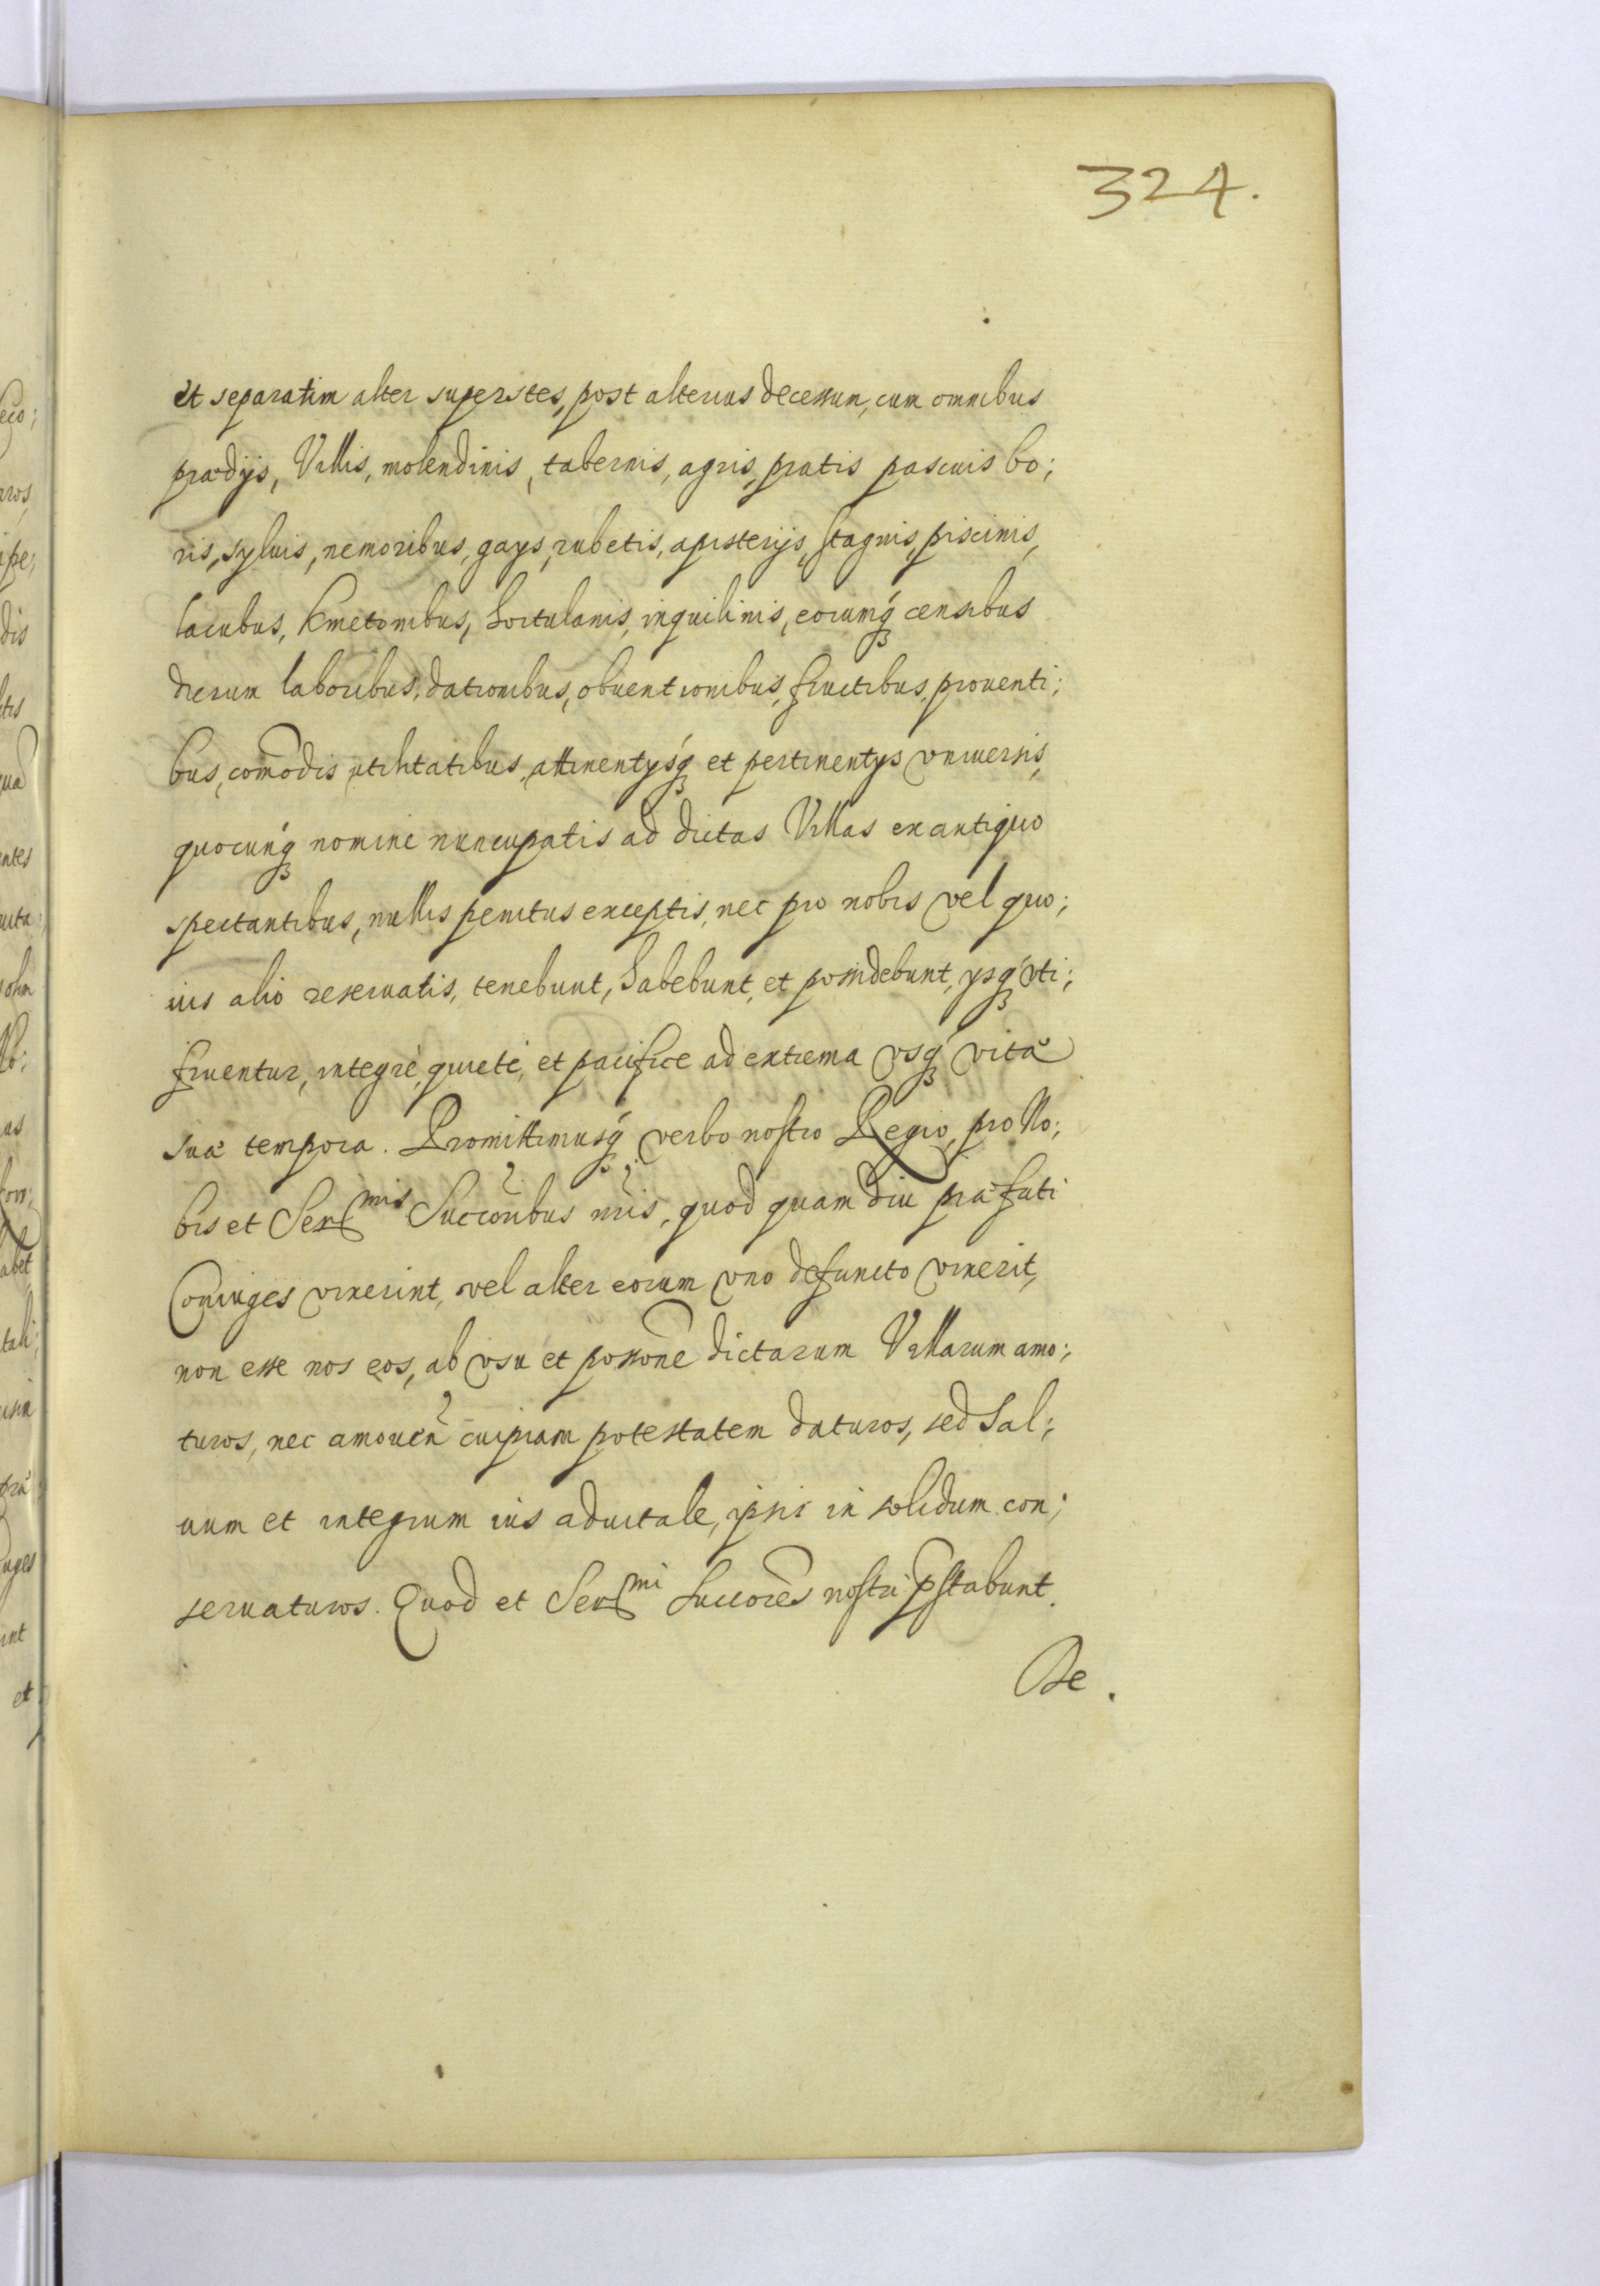 324.
et separatim alter superstes, post alterius decessum, cum omnibus
prædijs, Villis, molendinis, tabernis, agris, pratis pascuis bo;
ris, syluis, nemoribus, gays, rubetis, apisterijs, stagnis, piscinis,
lacubus, Kmetonibus, hortulanis, inquilinis, eorumq́ꝫ censibus
dierum laboribus, dationibus, obuentionibus, fructibus, prouenti;
bus, com̄odis utilitatibus, attinentysq́ꝫ et pertinentys vniuersis,
quocunq́ꝫ nomine nuncupatis ad dictas Villas ex antiquo
spectantibus, nullis penitus exceptis, nec pro nobis vel quo;
uis alio reseruatis, tenebunt, habebunt, et possidebunt, ysq́ꝫ vti;
fruentur, integrè, quietè, et pacifice ad extrema vsq́ꝫ vitæ
suæ tempora. Promittimusq́ꝫ verbo nostro Regio, pro No;
bis et Ser^mis Succōribus nr̄is, quod quam diu præfati
Coniuges vixerint, vel alter eorum vno defuncto vixerit,
non esse nos eos, ab vsu et possōne dictarum Villarum amo;
turos, nec amouen̄ cuipiam potestatem daturos, sed sal;
uum et integrum ius aduitale, ipsis in solidum con;
seruaturos. Quod et Ser^mi Succorēs nostri p̄stabunt.
De.